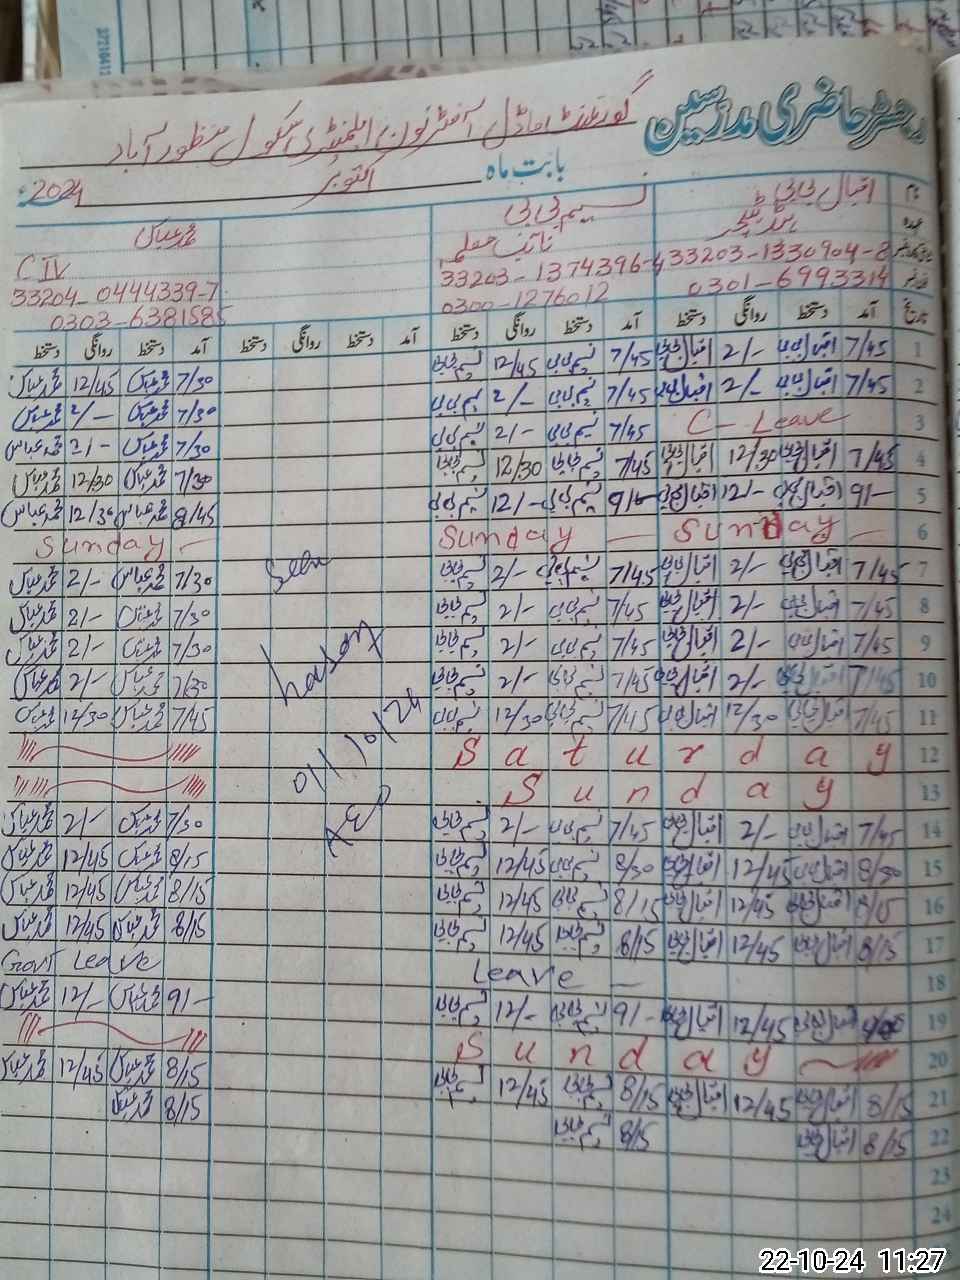 رجسٹر حاضری مدرسین
گورنمنٹ ماڈل آفٹر نون ایلمنٹری سکول منظور آباد
بابت ماہ اکتوبر 2024ء
نام اقبال بی بی نسیم بی بی محمد عباس
عہدہ ہیڈ ٹیچر نائب معلمہ CIV
33203-1330904-8 33203-1374396-4 33204-0444339-7
0301-6993314 0300-1276012 0303-6381585
تاریخ آمد دستخط روانگی دستخط آمد دستخط روانگی دستخط آمد دستخط روانگی دستخط آمد دستخط روانگی دستخط
1 7/45 اقبال بی بی 2/- اقبال بی بی 7/45 نسیم بی بی 12/45 نسیم بی بی 7/30 محمد عباس 12/45 محمد عباس
2 7/45 اقبال بی بی 2/- اقبال بی بی 7/45 نسیم بی بی 2/- نسیم بی بی 7/30 محمد عباس 2/- محمد عباس
3 C-Leave 7/45 نسیم بی بی 2/- نسیم بی بی 7/30 محمد عباس 2/- محمد عباس
4 7/45 اقبال بی بی 12/30 اقبال بی بی 7/45 نسیم بی بی 12/30 نسیم بی بی 7/30 محمد عباس 12/30 محمد عباس
5 9/- اقبال بی بی 12/- اقبال بی بی 9/- نسیم بی بی 12/- نسیم بی بی 8/45 محمد عباس 12/30 محمد عباس
6 Sunday Sunday Sunday
7 7/45 اقبال بی بی 2/- اقبال بی بی 7/45 نسیم بی بی 2/- نسیم بی بی 7/30 محمد عباس 2/- محمد عباس
8 7/45 اقبال بی بی 2/- اقبال بی بی 7/45 نسیم بی بی 2/- نسیم بی بی 7/30 محمد عباس 2/- محمد عباس
9 7/45 اقبال بی بی 2/- اقبال بی بی 7/45 نسیم بی بی 2/- نسیم بی بی 7/30 محمد عباس 2/- محمد عباس
10 7/45 اقبال بی بی 2/- اقبال بی بی 7/45 نسیم بی بی 2/- نسیم بی بی 7/30 محمد عباس 2/- محمد عباس
11 7/45 اقبال بی بی 12/30 اقبال بی بی 7/45 نسیم بی بی 12/30 نسیم بی بی 7/45 محمد عباس 12/30 محمد عباس
12 Saturday
13 Sunday
14 7/45 اقبال بی بی 2/- اقبال بی بی 7/45 نسیم بی بی 2/- نسیم بی بی 7/30 محمد عباس 2/- محمد عباس
15 8/30 اقبال بی بی 12/45 اقبال بی بی 8/30 نسیم بی بی 12/45 نسیم بی بی 8/15 محمد عباس 12/45 محمد عباس
16 8/15 اقبال بی بی 12/45 اقبال بی بی 8/15 نسیم بی بی 12/45 نسیم بی بی 8/15 محمد عباس 12/45 محمد عباس
17 8/15 اقبال بی بی 12/45 اقبال بی بی 8/15 نسیم بی بی 12/45 نسیم بی بی 8/15 محمد عباس 12/45 محمد عباس
18 Leave Govt Leave
19 اقبال بی بی 12/45 اقبال بی بی 9/- نسیم بی بی 12/- نسیم بی بی 9/- محمد عباس 12/- محمد عباس
20 Sunday
21 8/15 اقبال بی بی 12/45 اقبال بی بی 8/15 نسیم بی بی 12/45 نسیم بی بی 8/15 محمد عباس 12/45 محمد عباس
22 8/15 اقبال بی بی 8/15 نسیم بی بی 8/15 محمد عباس
23
24
Seen
hassan
011/10/24
AEO
22-10-24 11:27